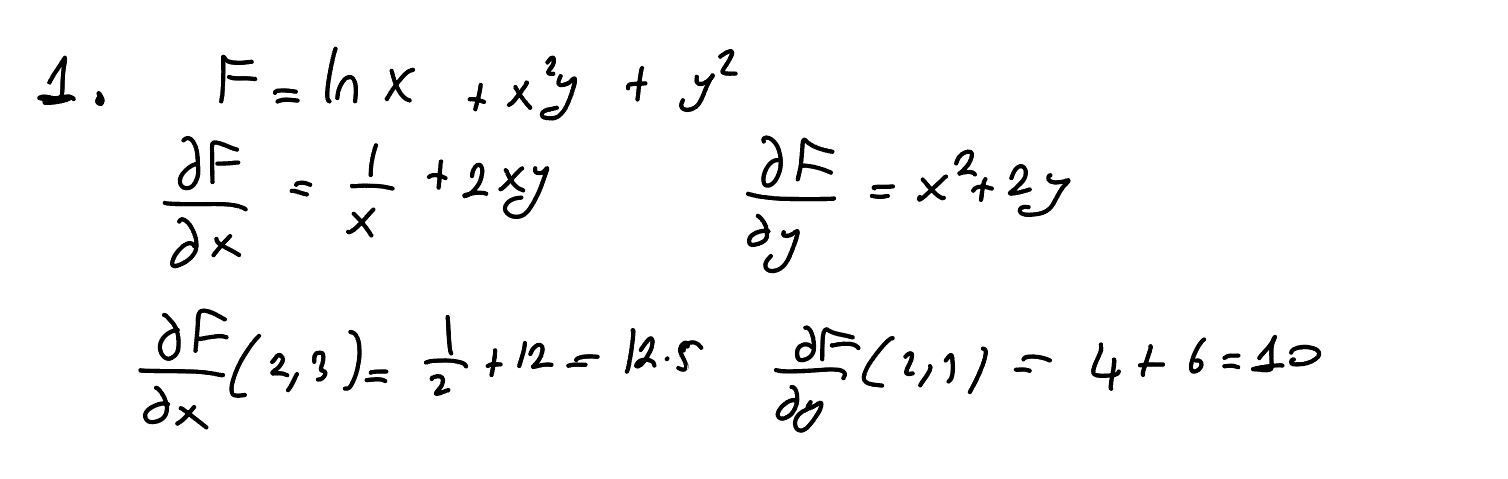 1. F = ln x + x²y + y²
∂F/∂x = 1/x + 2xy ∂F/∂y = x² + 2y
∂F/∂x (2,3) = 1/2 + 12 = 12.5 ∂F/∂y (2,3) = 4 + 6 = 10